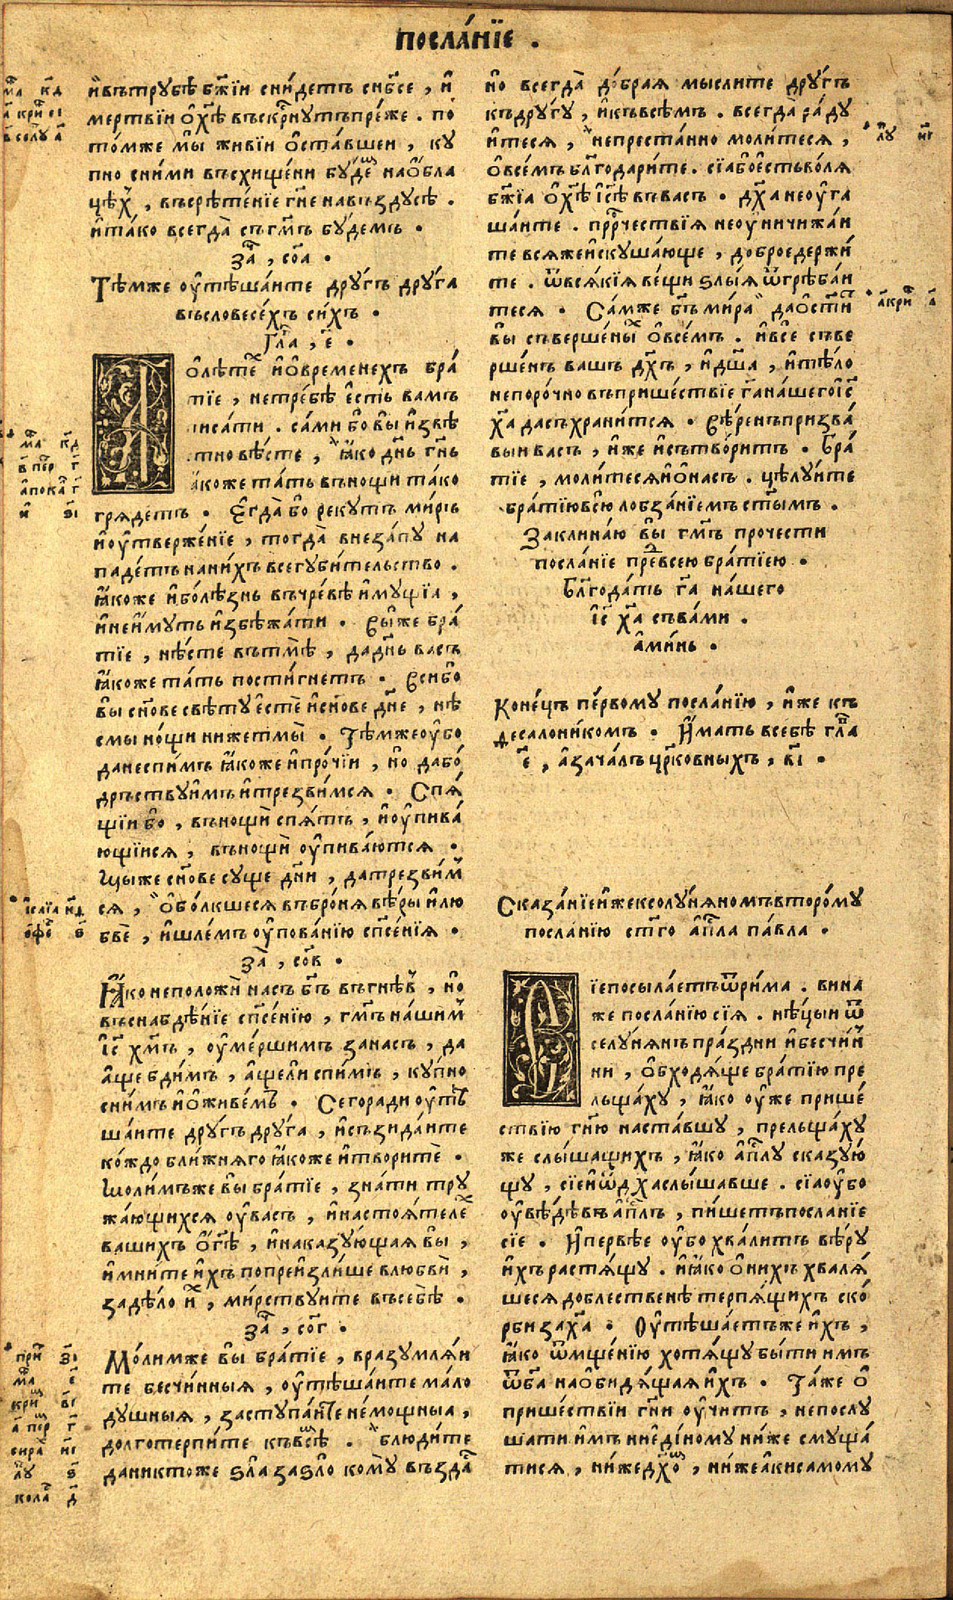 посла́нїе .
и҆въ трꙋбѣ̀ бж҃їи сни́детъ сн҃бсе , и҆
ме́ртвїи ѻ҆ х҃ѣ въскр҃нꙋтъ пре́же . по
то́мже мы̀ живі́и ѻ҆ста́вшеи , кꙋ
пно сни́ми въсхище́ни бꙋ́деⷨ нао҆́бла
цѣⷯ , въсрѣ́тенїе гн҃е навъздꙋсѣ .
и҆та́ко всегда̀ съгмⷣъ бꙋ́демъ .
заⷱ , со҃а .
Тѣ́мже ᲂу҆тѣша́ите дрꙋ́гъ дрꙋга
въсловесе́хъ си́хъ .
Гла҃ , є҃ .
Ѻ҆лѣ́теⷯ и҆ѻ҆време́нехъ бра́
тїе , нетре́бѣ є҆́сть вамъ
писа́ти . са́ми бо вы̀ и҆звѣ́
стно вѣ́сте , ꙗ҆́ко дн҃ь гн҃ь
ꙗ҆́коже та́ть въно́щи та́ко
гряде́тъ . Є҆гда́ бо рекꙋтъ ми́ръ
и҆ᲂу҆твержє́нїе , тогда̀ внеза́пꙋ на
паде́тъ нани́хъ всегꙋби́тельство .
ꙗ҆́коже и҆боле́знь въчре́вѣ и҆мꙋ́щїа ,
и҆неи҆́мꙋть и҆збѣжа́ти . Вы́же бра́
тїе , нѣ́сте въ тмѣ̀ , дадн҃ь васъ
ꙗ҆́коже та́ть пости́гнетъ . Вси́бо
вы̀ сн҃ове свѣ́тꙋ є҆стѐ и҆сн҃ове дн҃е , нѣ
смы но́щи нижетмы̀ . Тѣ́мжеᲂу҆бо
данеспи́мъ ꙗ҆́коже и҆про́чїи , но̀ дабо́
дръствꙋи҆мъ и҆трезви́мся . Спя́
щїи бо̀ , въно́щи спя́тъ , и҆ᲂу҆пива́
ющїися , въно́щи ᲂу҆пива́ются .
Мы́же сн҃ове сꙋще дн҃и , датрезви́мⸯ
ся , ѻ҆бо́лкшеся въброня̀ вѣ́ры и҆лю
бвѐ , и҆шле́мъ ᲂу҆пова́нїю сп҃се́нїя .
заⷱ , со҃в .
Ꙗ҆́ко неположѝ насъ бг҃ъ въгнѣ́въ , но̀
въснабдѣ́нїе сп҃се́нїю , гмⷣъ на́шиⷨ
і҆с҃ хмⷭ҇ъ , ᲂу҆ме́ршимъ занасъ , да
а҆́ще бди́мъ , а҆́ще ли спи́мъ , кꙋ́пно
сни́мъ и҆ѻ҆живе́мъ . Сего́ради ᲂу҆тѣ
ша́ите дрꙋ́гъ дрꙋ́га , и҆съзида́ите
ко́ждо бли́жняго ꙗ҆́коже и҆творитѐ .
Мо́лимъже вы̀ бра́тїе , зна́ти трꙋ
жа́ющихся ᲂу҆васъ , и҆настоя́телеⷯ
ва́шихъ ѻ҆ г҃ѣ , и҆наказꙋ́ющая вы̀ ,
и҆мни́те и҆́хъ попреи҆зли́ше влюбвѝ ,
задѣ́ло иⷯ , ми́рствꙋите въсебѣ̀ .
заⷱ , со҃г .
Мо́лимже вы̀ бра́тїе , вразꙋмля́и
те бесчи́нныя , ᲂу҆тѣша́ите ма́ло
дꙋ́шныя , застꙋпа́ите не́мощныа ,
долготерпи́те къвсѣ́мъ . блюди́те
даникто́же ѕла̀ заѕло̀ комꙋ̀ възда́стъ
но̀ всегда̀ до́брая мы́слите дрꙋ́гъ
къдрꙋ́гꙋ , и҆къвсѣ́мъ . всегда̀ ра́дꙋ
итеся , непреста́нно моли́теся ,
ѻ҆все́мъ бл҃годари́те . сїабо̀є҆стьво́ля
бж҃їа ѻ҆ х҃ѣ і҆с҃ѣ въва́съ . дх҃а неᲂу҆га
ша́ите . прⷪ҇рчествїя неᲂу҆ничижа́и
те вся́жеи҆скꙋша́юще , до́броедержи́
те . ѿвся́кїя ве́щи ѕлы́я ѿгрѣба́и
теся . Са́мже бг҃ъ ми́ра даѻ҆ст҃и́тъ
вы̀ съверше́ны ѻ҆всеⷨ . и҆всѐ съве
рше́нъ вашъ дх҃ъ , и҆дш҃а , и҆тѣ́ло
непоро́чно въприше́ствїе гд҃а на́шегоі҆с҃
х҃а дасъхрани́тся . Вѣ́ренъпризва́
выи ва́съ , и҆́же и҆сътвори́тъ . Бра́
тїе , моли́теся и҆ѻ҆на́съ . цѣлꙋ́ите
бра́тїювсю̀ лобза́нїемъ ст҃ы́мъ .
Заклина́ю вы̀ гмⷣъ прочестѝ
посла́нїе преⷣвсею бра́тїею .
Бл҃года́ть гд҃а на́шего
і҆с҃ х҃а съва́ми .
а҆ми́нь .
Коне́цъ пе́рвомꙋ посла́нїю , и҆́же къ
десалони́комъ . И҆́мать всебѣ̀ гла҃
є҃ , азача́лъ црко́вныхъ , в҃і .
Сказа́нїеи҆́жексолꙋ́няномъвторо́мꙋ
посла́нїю ст҃го а҆пⷭ҇ла па́вла .
Сїепосыла́етъѿри́ма . вина́
же посла́нїю сїя . нѣ́цыи ѿ
селꙋ́нянъ пра́здни и҆бесчи́н
ни , ѻ҆бходя́ще бра́тїю пре
льща́хꙋ , ꙗ҆́ко ᲂу҆́же прише́
ствїю гн҃ю наста́вшꙋ , прельща́хꙋ
же слы́шащихъ , ꙗ҆́ко а҆пⷭ҇лꙋ сказꙋю́
щꙋ , сїеи҆ѿдх҃аслы́шавше . сїаᲂу҆бо
ᲂу҆вѣ́дѣвъ а҆пⷭ҇лъ , пи́шетъпосла́нїе
сїе . И҆пе́рвѣе ᲂу҆бо хва́литъ вѣ́рꙋ
и҆́хъ растя́щꙋ . и҆ꙗ҆́ко ѻ҆ни́хъ хваля́
шеся до́блественѣ терпя́щихъ ско́
рби зах҃а . Оу҆тѣша́етъже и҆́хъ ,
ꙗ҆́ко ѿмще́нїю хотя́щꙋ бы́ти и҆мъ
ѿб҃а наѻ҆би́дящая и҆́хъ . Та́же ѻ҆
прише́ствїи гн҃и ᲂу҆чи́тъ , непослꙋ́
шати и҆́мъ ниеди́номꙋ ни́же смꙋща́
тися , ни́жедх҃омъ , ни́жеа҆́кисамомꙋ